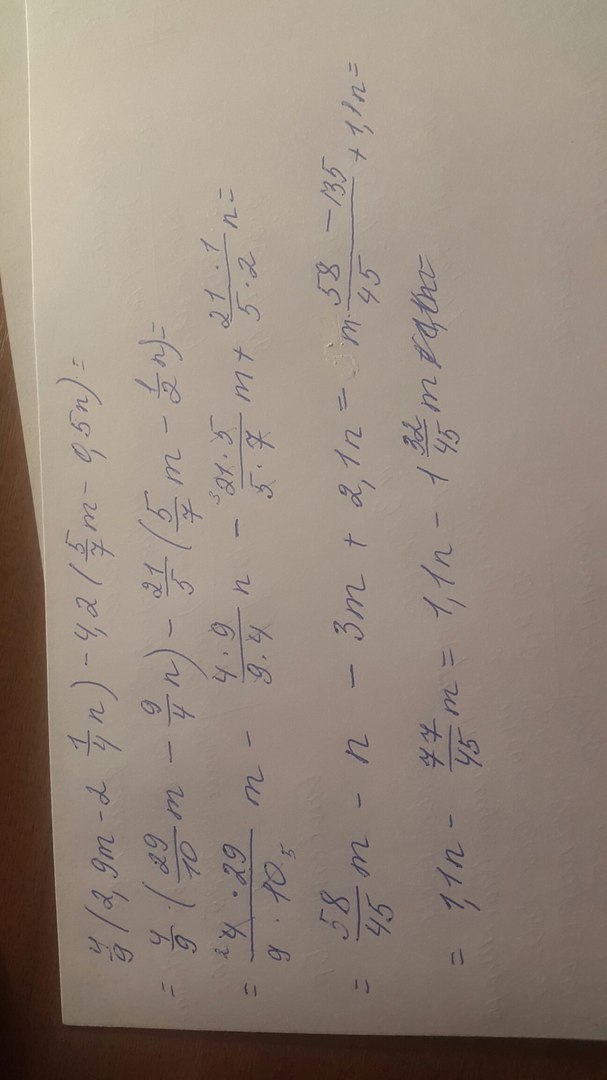 4/9 (2,9m - 2 1/4 n) - 4,2 (5/7 m - 0,5n) =
= 4/9 · (29/10 m - 9/4 n) - 21/5 (5/7 m - 1/2 n) =
= 2 4 · 29 / 9 · 10 5 m - 4 · 9 / 9 · 4 n - 3 21 · 5 / 5 · 7 m + 21 · 1 / 5 · 2 n =
= 58/45 m - n - 3m + 2,1n = m · 58 - 135 / 45 + 1,1n =
= 1,1n - 77/45 m = 1,1n - 1 32/45 m